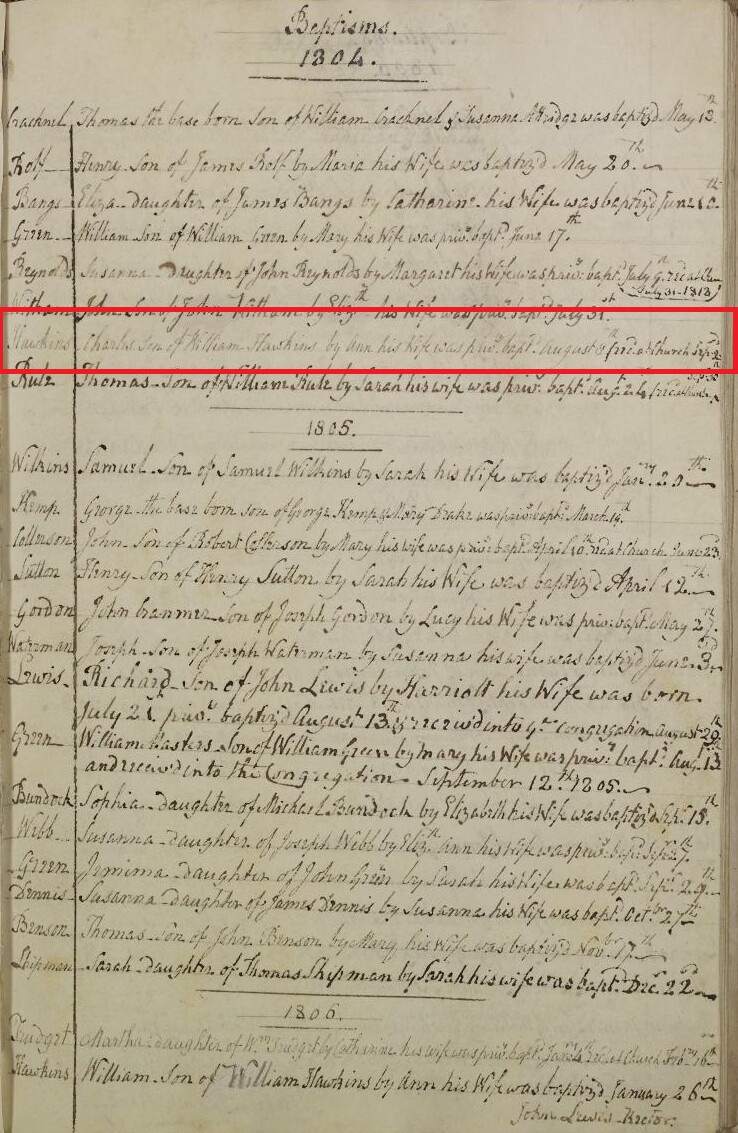 Baptisms.
1804.
Cracknel Thomas the base born Son of William Cracknel & Susanna was baptiz'd May 13th
Rolf Henry Son of James Rolf by Maria his Wife was baptiz'd May 20th
Bangs Eliza daughter of James Bangs by Catharine his Wife was baptiz'd June 10th
Green William Son of William Green by Mary his Wife was priv: bapt. June 17th
Reynolds Susanna Daughter of John Reynolds by Margaret his Wife was priv: bapt. July 9th rec'd at
July 31-1813)
Witham John Son of John Witham by Eliz'th his Wife was priv: bapt. July 31st
Hawkins Charles Son of William Hawkins by Ann his Wife was priv: bapt. August (rec'd at Church Sep.
Rule Thomas Son of William Rule by Sarah his wife was priv: bapt. Aug. 24 (rec'd at Church
1805.
Wilkins Samuel Son of Samuel Wilkins by Sarah his Wife was baptiz'd Jan'ry 20th
Kemp George the base born son of George Kemp & Mary Drake was priv: bapt. March 19th
Colleson John Son of Robert Colleson by Mary his wife was priv: bapt. April 10th rec'd at Church June 23d
Sutton Henry Son of Henry Sutton by Sarah his Wife was baptiz'd April 12th
Gordon John Cranmer Son of Joseph Gordon by Lucy his Wife was priv: bapt. May 27th
Waterman Joseph Son of Joseph Waterman by Susanna his wife was baptiz'd June 3rd
Lewis Richard Son of John Lewis by Harriott his Wife was born
July 21 priv: baptiz'd August 13th & received into ye Congregation August 29th
Green William Masters Son of William Green by Mary his Wife was priv: bapt. Aug. 13th
and received into the Congregation September 12th 1805
Burdock Sophia daughter of Michael Burdock by Elizabeth his Wife was baptiz'd Sep. 15th
Webb Susanna daughter of Joseph Webb by Eliz'th Ann his Wife was priv: bapt. Sept. 27th
Green Jemima daughter of John Green by Sarah his Wife was bapt. Sept. 29th
Dennis Susanna daughter of James Dennis by Susanna his Wife was bapt. Octbr 27th
Benson Thomas Son of John Benson by Mary his Wife was baptiz'd Novbr 17th
Shipman Sarah daughter of Thomas Shipman by Sarah his wife was bapt. Dec. 22d
1806.
Trudget Martha daughter of Wm Trudget by Catharine his wife was priv: bapt. rec'd at Church Feb'ry 16th
Hawkins William Son of William Hawkins by Ann his Wife was baptiz'd January 26th
John Lewis Rector.